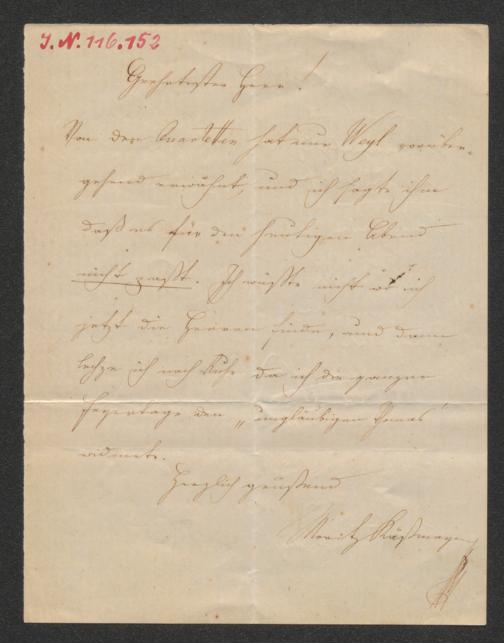 J. N. 116.152
Geehrtester Herr!
Von den Quartetten hat nur Weyl vorüber-
gehend erwähnt, und ich sagte ihm
daß es für den heutigen Abend
nicht paßt. Ich wüßte nicht wo ich
jetzt die Herren finde, und dann
lechze ich nach Ruhe da ich die ganzen
Feyertage den „ungläubigen Thomas"
widmete.
Herzlich grüßend
Moritz Käßmayer